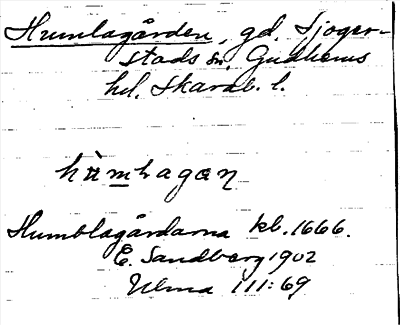 Humlagården, gd, Sjoger-
stads sn, Gudhems
hd. Skarab. l.
hùmlagan
Humblagårdarna kb. 1666.
E. Sandberg 1902
Ulma 111:69